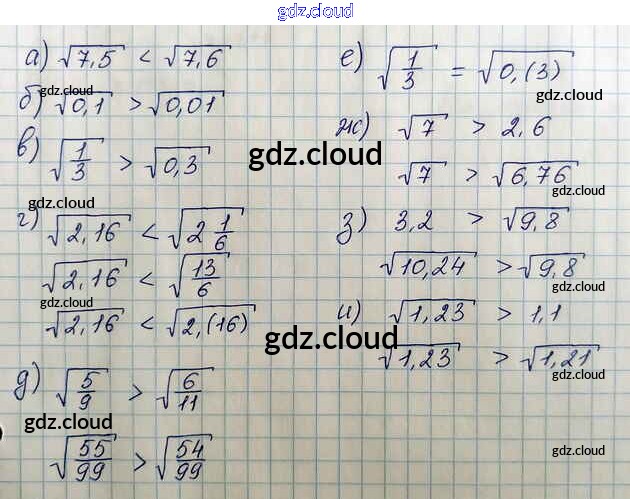 gdz.cloud
а) √7,5 < √7,6
б) √0,1 > √0,01
в) √1/3 > √0,3
г) √2,16 < √2 1/6
√2,16 < √13/6
√2,16 < √2,(16)
д) √5/9 > √6/11
√55/99 > √54/99
е) √1/3 = √0,(3)
ж) √7 > 2,6
√7 > √6,76
з) 3,2 > √9,8
√10,24 > √9,8
и) √1,23 > 1,1
√1,23 > √1,21
gdz.cloud
gdz.cloud
gdz.cloud
gdz.cloud
gdz.cloud
gdz.cloud
gdz.cloud
gdz.cloud
gdz.cloud
gdz.cloud
gdz.cloud